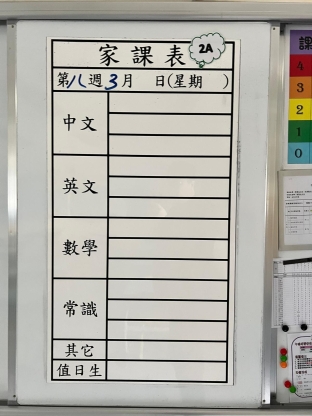 家課表 2A
第八週3月 日(星期 )
中文
英文
數學
常識
其它
值日生
課
4
3
2
1
0